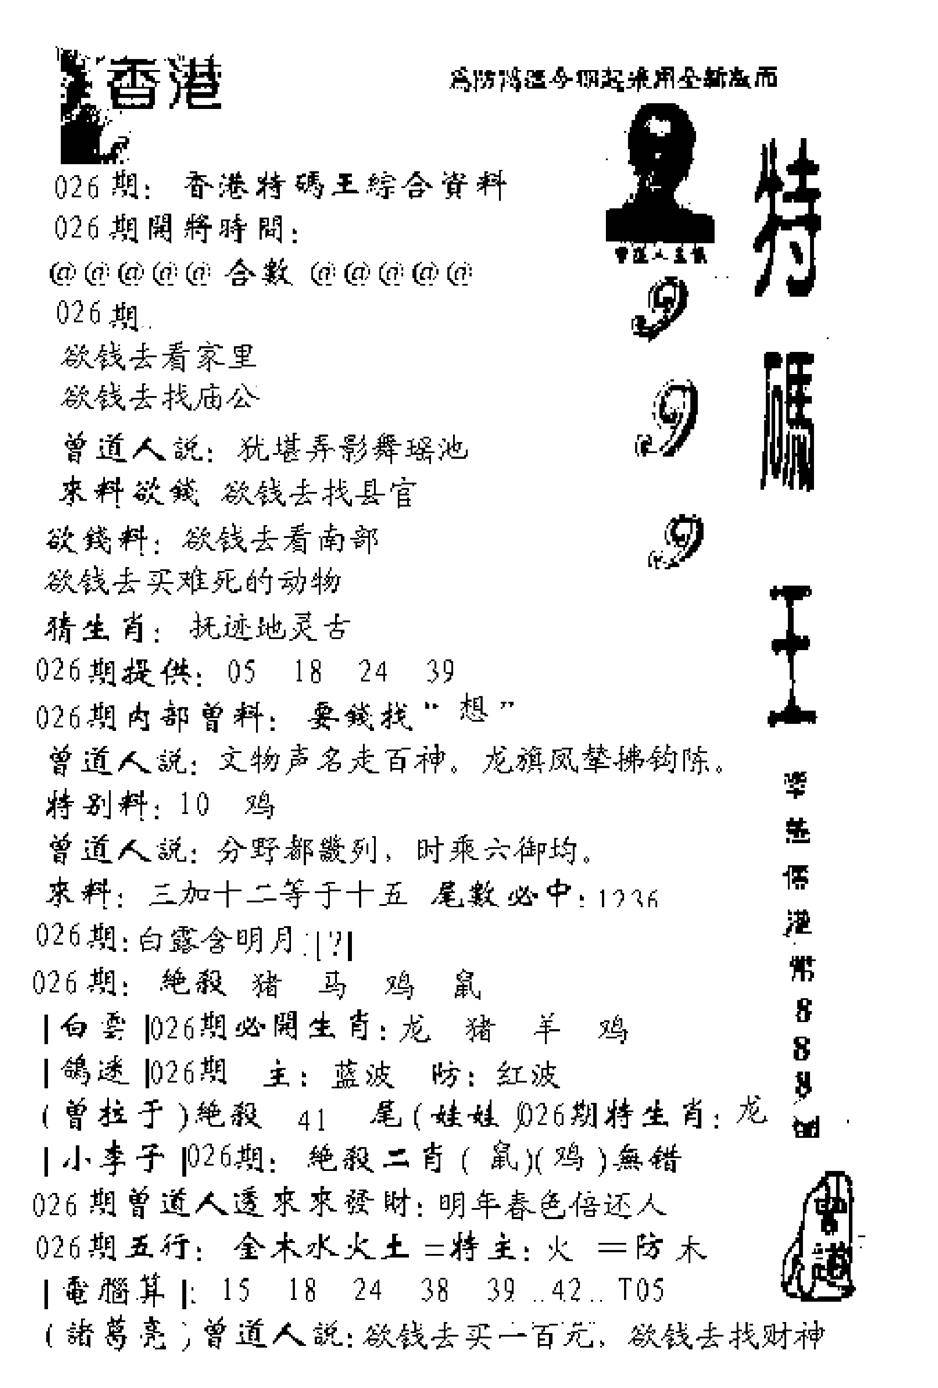 香港
026期：香港特碼王綜合資料
026期開將時間：
@@@@@合數@@@@@
026期
欲钱去看家里
欲钱去找庙公
曾道人説：犹堪弄影舞瑶池
來料欲錢 欲钱去找县官
欲錢料：欲钱去看南部
欲钱去买难死的动物
猜生肖：抚迹地灵古
026期提供：05 18 24 39
026期内部曾料：要錢找“想”
曾道人説：文物声名走百神。龙旗凤辇拂钩陈。
特别料：10 鸡
曾道人説：分野都畿列，时乘六御均。
來料：三加十二等于十五 尾數必中：1236
026期：白露含明月：[?]
026期：絶殺 猪 马 鸡 鼠
|白雲|026期必開生肖：龙 猪 羊 鸡
|鴿迷|026期 主：蓝波 防：红波
(曾拉于)絶殺 41 尾(娃娃)026期特生肖：龙
|小李子|026期：絶殺二肖(鼠)(鸡)無错
026期曾道人透來來發財：明年春色倍还人
026期五行：金木水火土=特主：火 =防木
|電腦算|：15 18 24 38 39..42..T05
(諸葛亮)曾道人説：欲钱去买一百元，欲钱去找财神
999
特碼王
港幣888
曾道